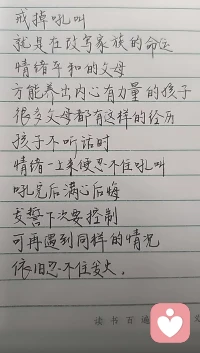 戒掉吼叫
就是在改写家族的命运
情绪平和的父母
方能养出内心有力量的孩子
很多父母都有这样的经历
孩子不听话时
情绪一上来便忍不住吼叫
吼完后满心后悔
发誓下次要控制
可再遇到同样的情况
依旧忍不住发火。
读书百遍